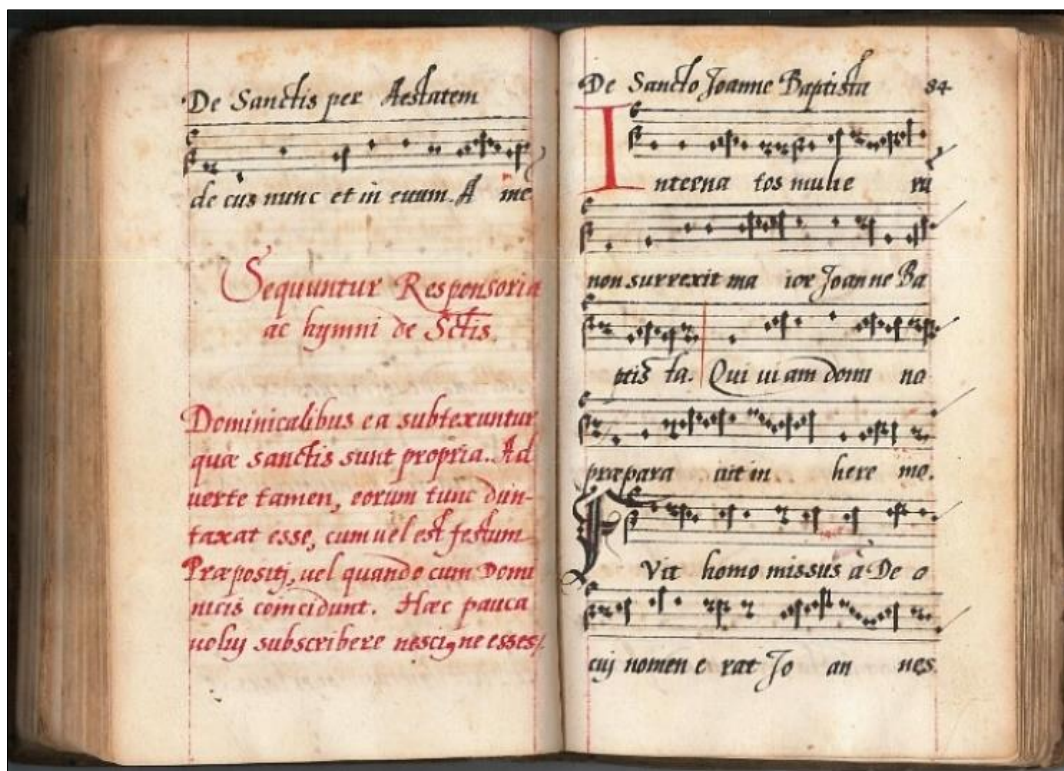 De Sanctis per Aestatem
de cus nunc et in euum. A me
Sequuntur Responsoria
ac hymni de Sctis.
Dominicalibus ea subtexuntur
quæ sanctis sunt propria. Ad
uerte tamen, eorum tunc dun-
taxat esse, cum uel est festum
Præpositj, uel quando cum Domi
nicis comcidunt. Hæc pauca
uoluj subscribere nescius ne esses.
De Sancto Joanne Baptista 84
Interna tos mulie rū
non surrexit ma ior Joan ne Ba
ptis ta. Qui ui am domi no
præpara uit in here mo.
Fvit homo missus à De o
cuj nomen e rat Jo an nes.